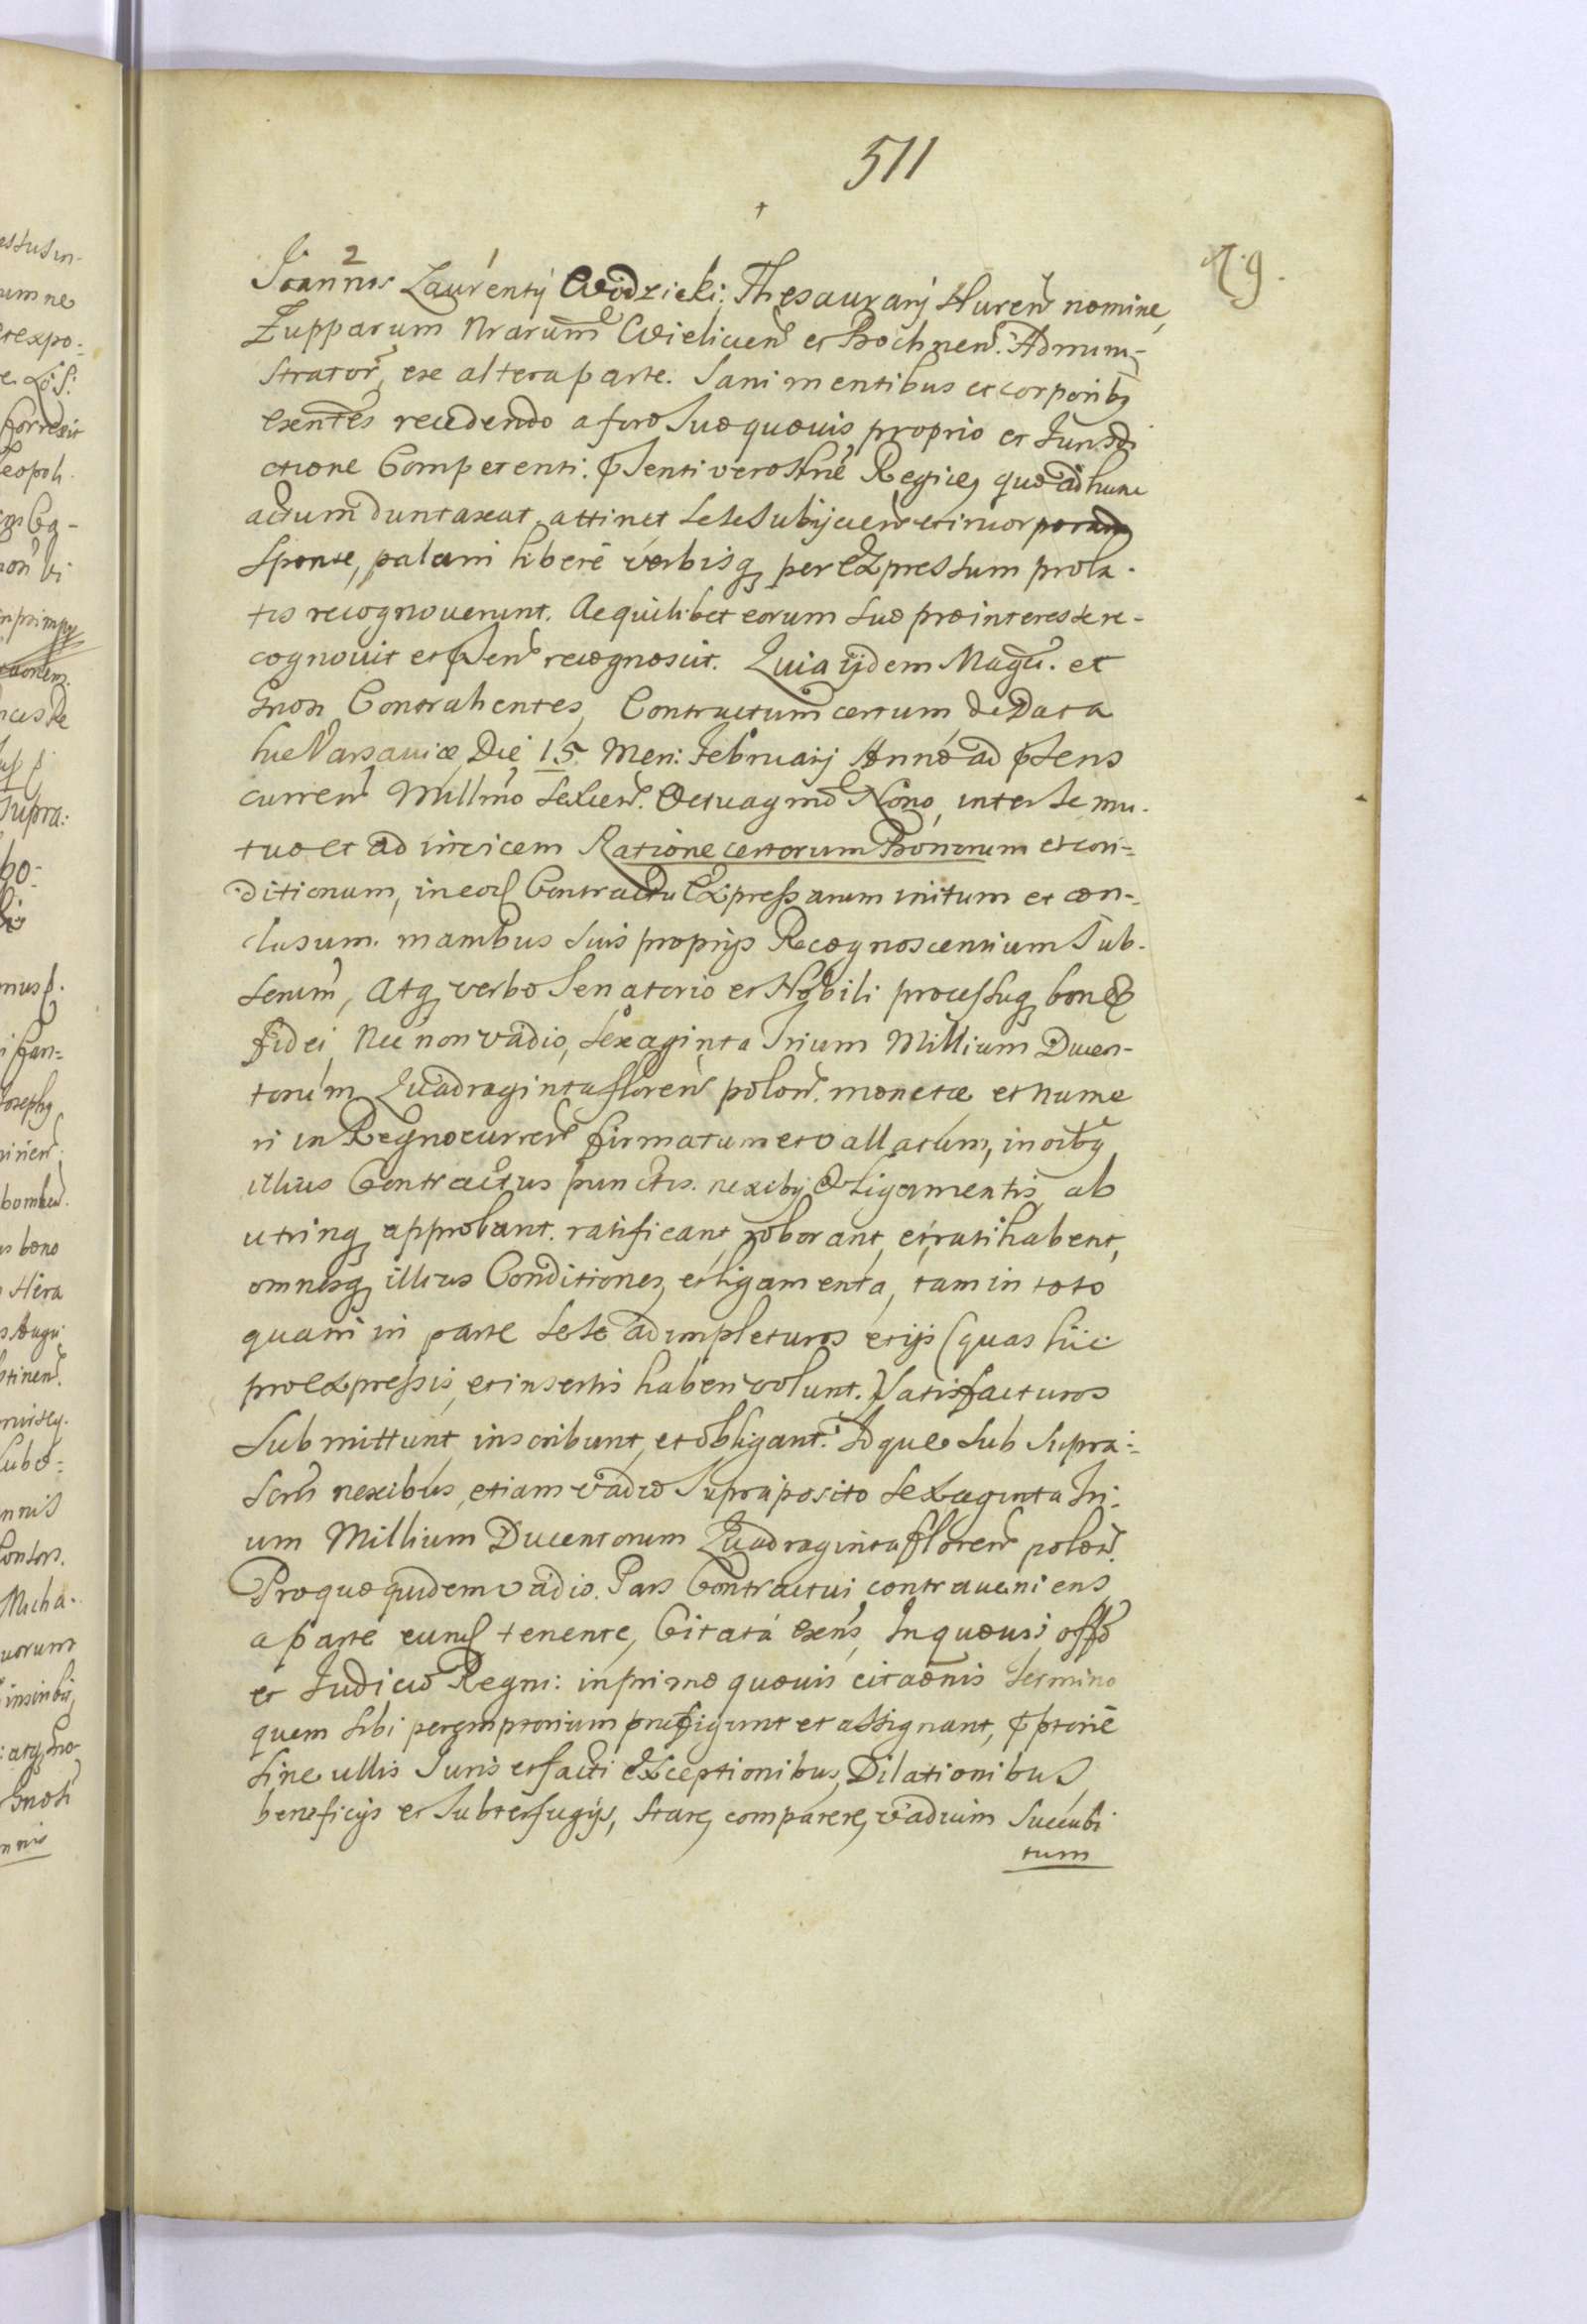 511
R. 9.
2 1
Joannis Laurentÿ Wodzicki, Thesaurarÿ Huren nomine,
Zupparum Nrarum Wielicien et Bochnen. Admini-
strator, ex altera parte. Sani mentibus et corporibq
exentes recedendo a foro suo quovis proprio et Jurisdi
ctione Competenti: pSenti vero Regiæ, quo ad hunc
actum duntaxat attinet sese subijcien et incorporan
sponte, palam liberè verbisq per expressum prola-
tis recognoverunt. Ac quilibet eorum suo pro interesse re-
cognovit et pSen recognoscit. Quia ijdem Magci. et
Gnosi Contrahentes, Contractum certum de Data
hic Varsaviæ, Die 15. Men: Februarij Anno ad pSens
curren Millmo Sexcen. Octuagmo Nono, inter se mu-
tuo et ad invicem Ratione certorum Bonorum et con-
ditionum, in eod Contractu Expressarum initum et con-
clusum. manibus suis proprijs Recognoscentium Sub-
scrium, Atq verbo Senatorio et Nobili processuq bonæ
fidei, Nec non vadio, Sexaginta Trium Millium Ducen-
torum Quadraginta floren polon. monetæ et Nume
ri in Regno curren firmatum et vallatum, in oibq
illius Contractus punctis. nexibq & Ligamentis ab
utrinq approbant. ratificant, roborant, et ratihabent,
omnesq illius Conditiones, et ligamenta, tam in toto
quam in parte sese adimpleturos et ijs (quas hic
pro expressis, et insertis haberi volunt.) Satisfacturos
submittunt, inscribunt, et obligant. Idque sub supra-
scris nexibus, etiam vadio supraposito Sexaginta Tri-
um Millium Ducentorum Quadraginta floren polon.
Pro quo quidem vadio. Pars Contractui contraveniens
a parte eund tenente, Citata exens, In quovis offo
et Judicio Regni: in primo quovis citaonis termino
quem sibi peremptorium præfigunt et assignant, pptoriè
sine ullis Juris et facti exceptionibus, Dilationibus
beneficijs et Subterfugijs, stare, comparere, vadium succubi
tum